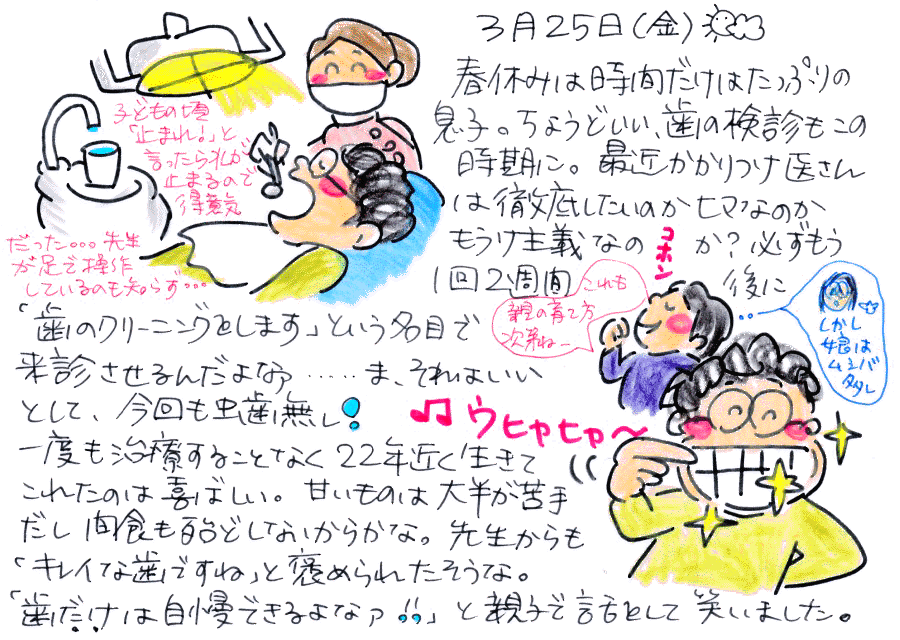 3月25日(金)
春休みは時間だけはたっぷりの
息子。ちょうどいい、歯の検診もこの
時期に。最近かかりつけ医さん
は徹底したいのかヒマなのか
もうけ主義なのか?必ずもう
1回2週間後に
「歯のクリーニングをします」という名目で
来診させるんだよなァ……ま、それはいい
として、今回も虫歯無し!
一度も治療することなく22年近く生きて
これたのは喜ばしい。甘いものは大半が苦手
だし間食も殆どしないからかな。先生からも
「キレイな歯ですね」と褒められたそうな。
「歯だけは自慢できるよなァ!!」と親子で話をして笑いました。
子どもの頃
「止まれ!」と
言ったら水が
止まるので
得意気
だった…先生
が足で操作
しているのも知らず…
コホン
これも
親の育て方
次第ねー
しかし
娘は
ムシバ
多し
♫ウヒャヒャ〜